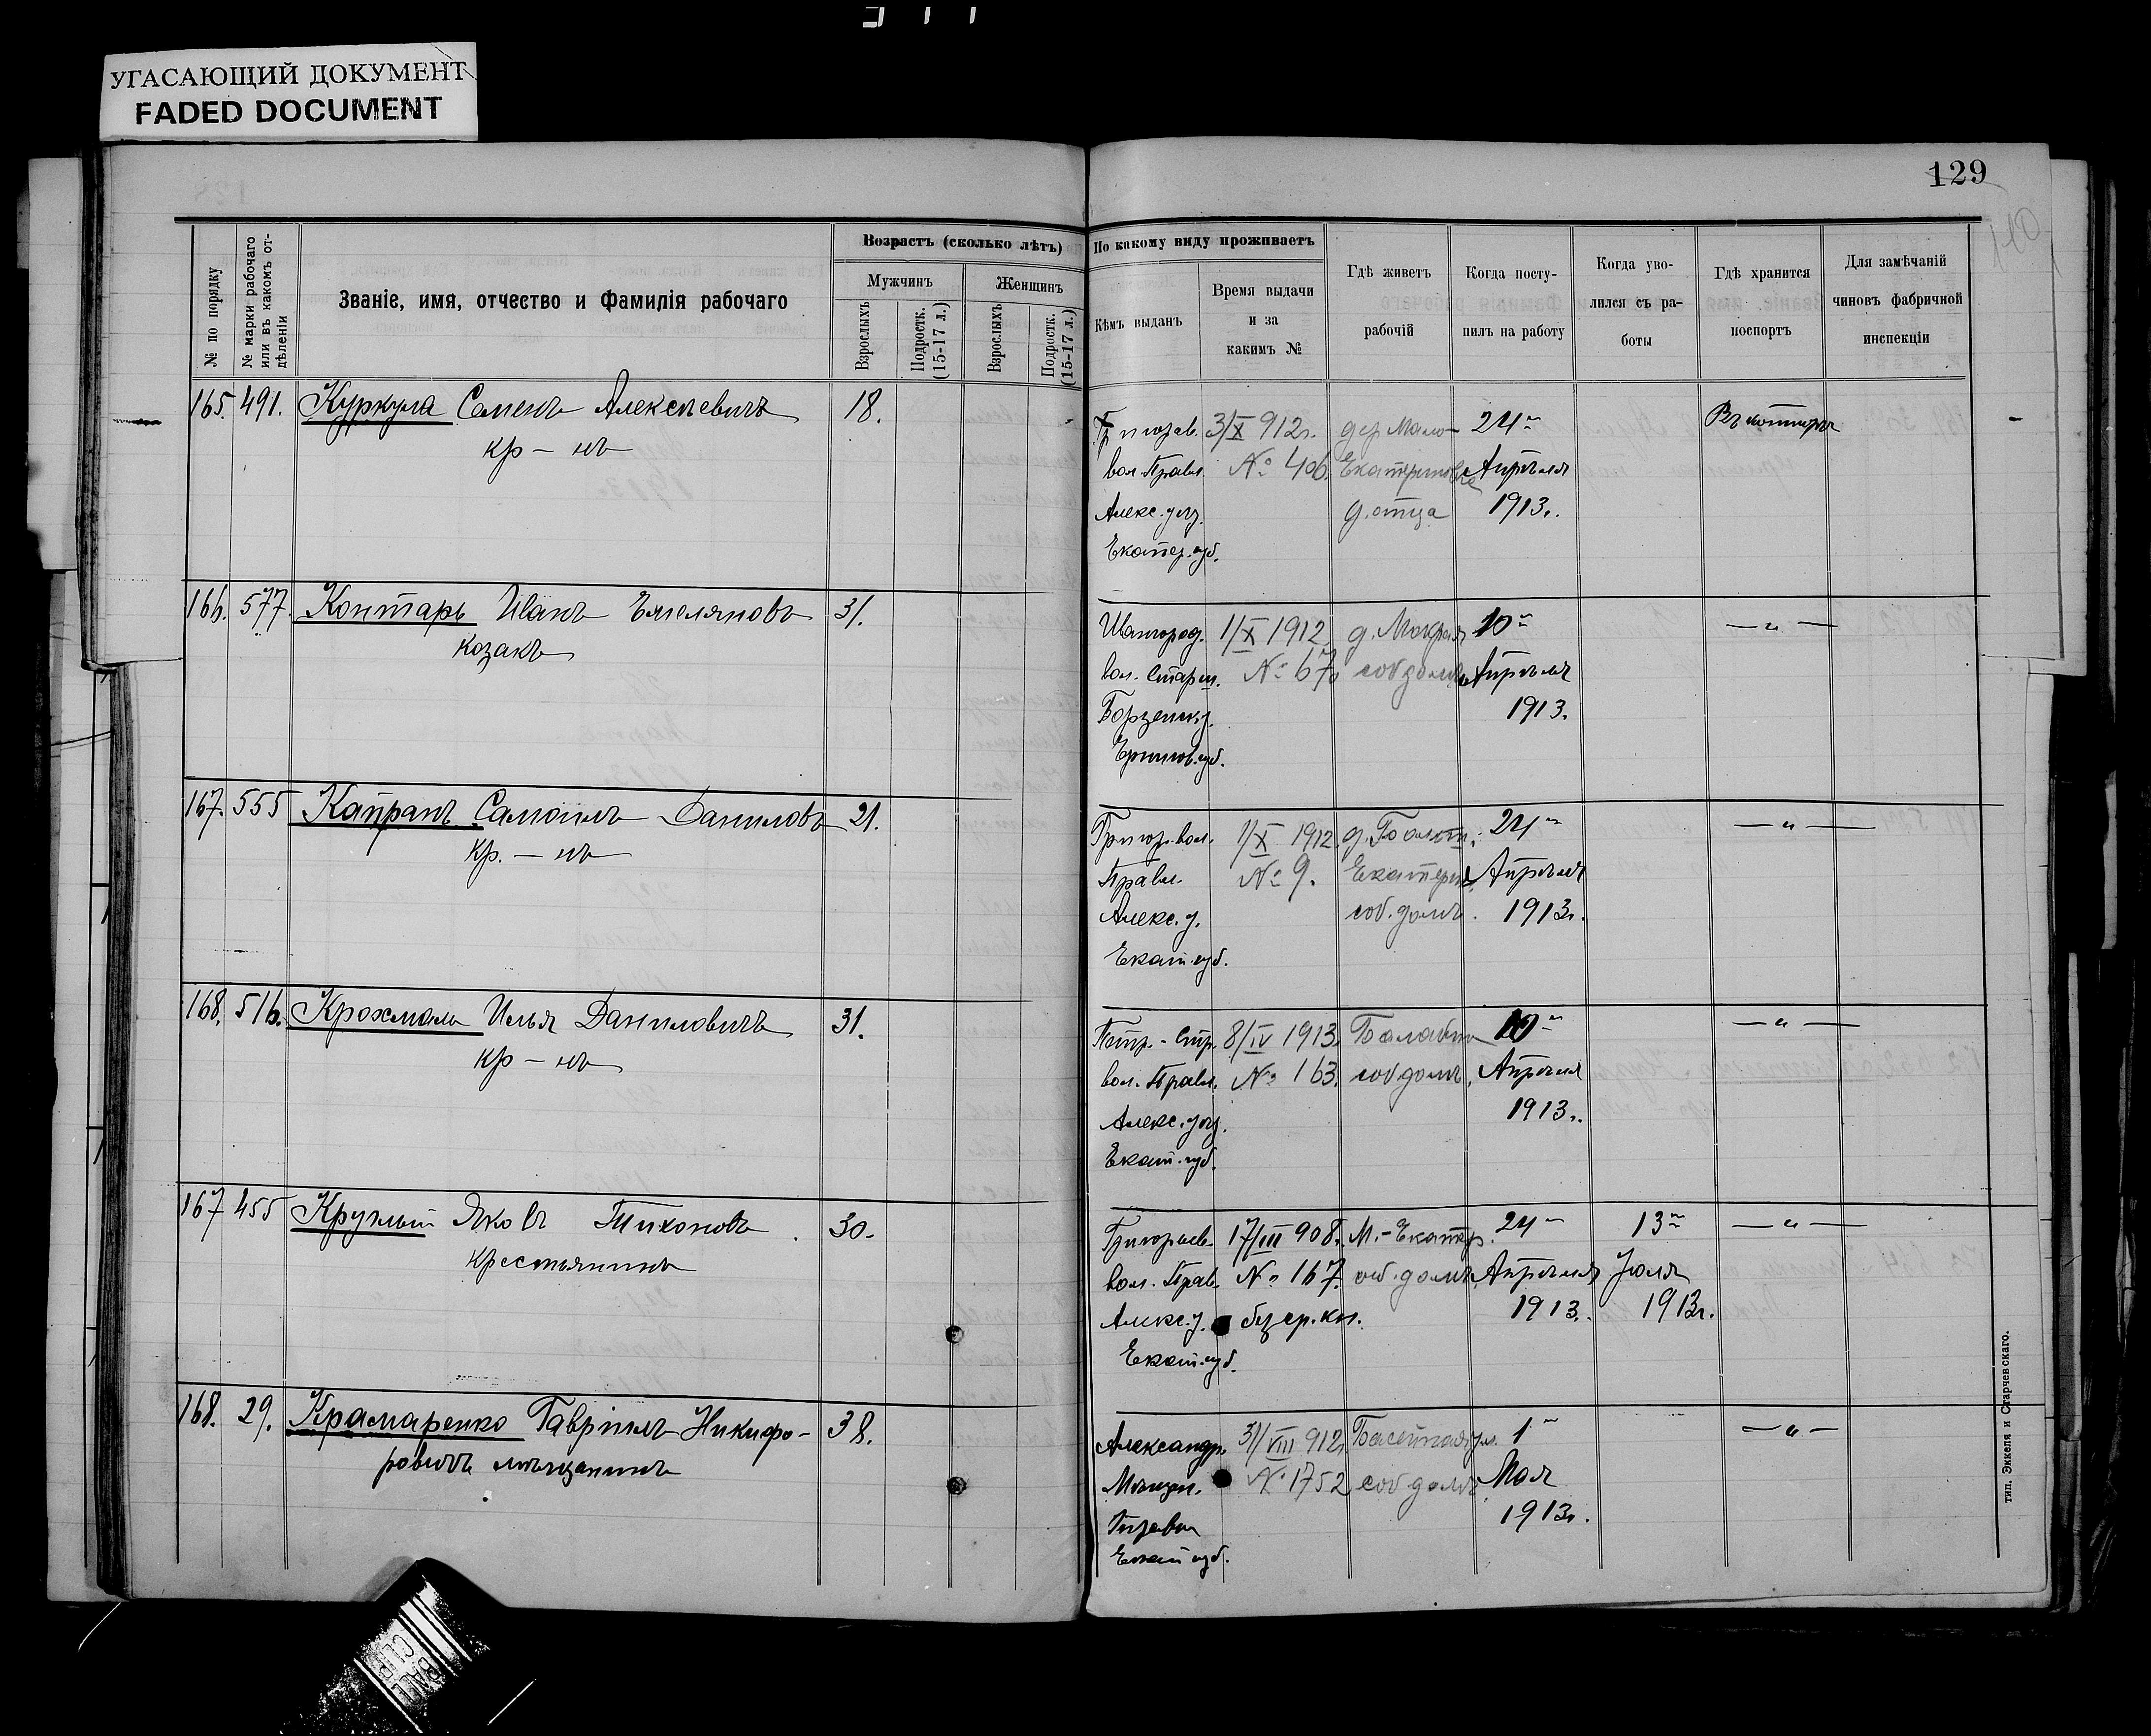 УГАСАЮЩИЙ ДОКУМЕНТ
FADED DOCUMENT
129
№ по порядку
№ марки рабочаго
или въ какомъ от-
дѣленіи
Званіе, имя, отчество и фамилія рабочаго
Возрастъ (сколько лѣтъ)
Мужчинъ
Женщинъ
Взрослыхъ
Подростк.
(15-17 л.)
Взрослыхъ
Подростк.
(15-17 л.)
По какому виду проживаетъ
Кѣмъ выданъ
Время выдачи
и за
какимъ №
Гдѣ живетъ
рабочій
Когда посту-
пилъ на работу
Когда уво-
лился съ ра-
боты
Гдѣ хранится
поспортъ
Для замѣчаній
чиновъ фабричной
инспекціи
165. 491. Куркула Семенъ Алексѣевичъ 18.
кр-нъ
Григорьев. 3/X 912г. дер. Мало- 24го Въ конторѣ
вол. Правл. № 406. Екатериновке Апрѣля
Алекс. уѣз. д. отца 1913г.
Екатер. губ.
166. 577. Контарь Иванъ Емеляновъ 31.
козакъ
Ивангород. 1/X 1912 д. Мокрая 10го — " —
вол. Старш. № 67. соб домъ Апрѣля
Борзенск. у. 1913.
Чернигов. губ.
167. 555 Капранъ Самоилъ Даниловъ 21.
кр.-нъ
Григор. вол. 1/X 1912. д. 24го — " —
Правл. № 9. Екатерин. Апрѣля
Алекс. у. соб. домъ. 1913г.
Екат. губ.
168. 516. Крохмаль Илья Даниловичъ 31.
кр-нъ
Петр. - 8/IV 1913. 10го — " —
вол. Правл. № 163. соб домъ. Апрѣля
Алекс. уѣз. 1913г.
Екат. губ.
167 455 Круглый Яковъ Тихоновъ 30.
крестьянинъ
Григорьев. 17/III 908г. М.-Екатер. 24го 13го — " —
вол. Прав. № 167. соб. домъ Апрѣля Іюля
Алекс. у. безср. кн. 1913. 1913г.
Екат. губ.
168. 29. Крамаренко Гавріилъ Никифо- 38.
ровичъ мѣщанинъ
Александр. 31/VIII 912г. Басейная ул. 1го — " —
Мѣщан. № 1752 соб домъ Мая
Управы 1913г.
Екат губ.
тип. Эккеля и Старчевскаго.